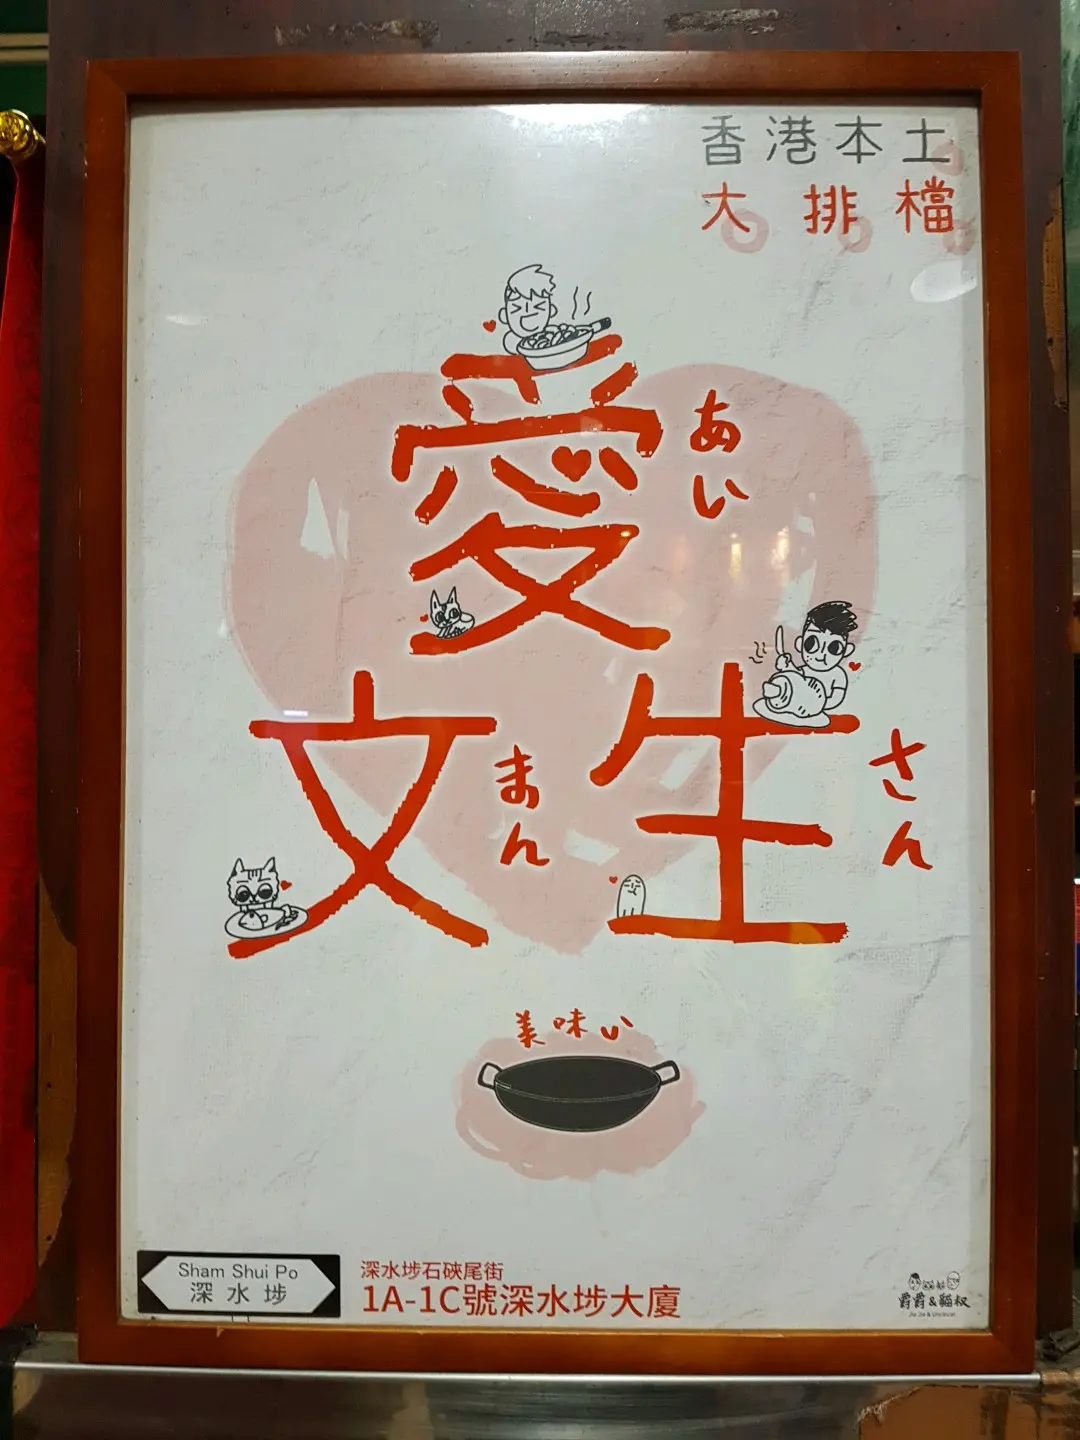 香港本土
大排檔
愛
あい
文
まん
生
さん
美味い
Sham Shui Po
深水埗
深水埗石硤尾街
1A-1C號深水埗大廈
爵爵&貓叔